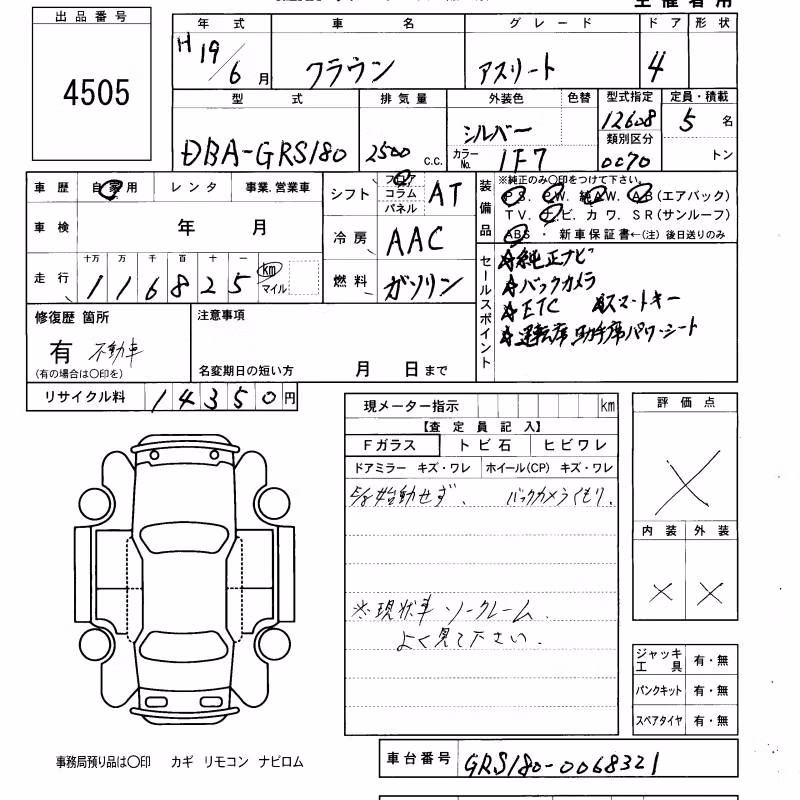 主催者用
出品番号
4505
年式 車名 グレード ドア 形状
H19/6月 クラウン アスリート 4
型式 排気量 外装色 色替 型式指定 定員・積載
DBA-GRS180 2500c.c. シルバー 12608 5名
カラーNo. 1F7 類別区分 0070 トン
車歴 自家用 レンタ 事業.営業車
車検 年 月
走行 十万 万 千 百 十 一
116825 km マイル
シフト フロア コラム パネル AT
冷房 AAC
燃料 ガソリン
装備品
※純正のみ○印をつけて下さい。
P.S. P.W. 純A.W. A.B(エアバック)
T V. ナ ビ. カ ワ. S R(サンルーフ)
ABS ・ 新車保証書←(注) 後日送りのみ
セールスポイント
☆純正ナビ
☆バックカメラ
☆ETC ☆スマートキー
☆運転席 助手席パワーシート
修復歴 箇所
有 不動車
(有の場合は○印を)
注意事項
名変期日の短い方 月 日まで
リサイクル料 14350円
現メーター指示 km
【査定員記入】
Fガラス トビ石 ヒビワレ
ドアミラー キズ・ワレ ホイール(CP) キズ・ワレ
始動せず、 バックカメラくもり、
※現状車 ノークレーム
よく見て下さい.
評価点
×
内装 外装
× ×
ジャッキ工具 有・無
パンクキット 有・無
スペアタイヤ 有・無
事務局預り品は○印 カギ リモコン ナビロム
車台番号 GRS180-0068321